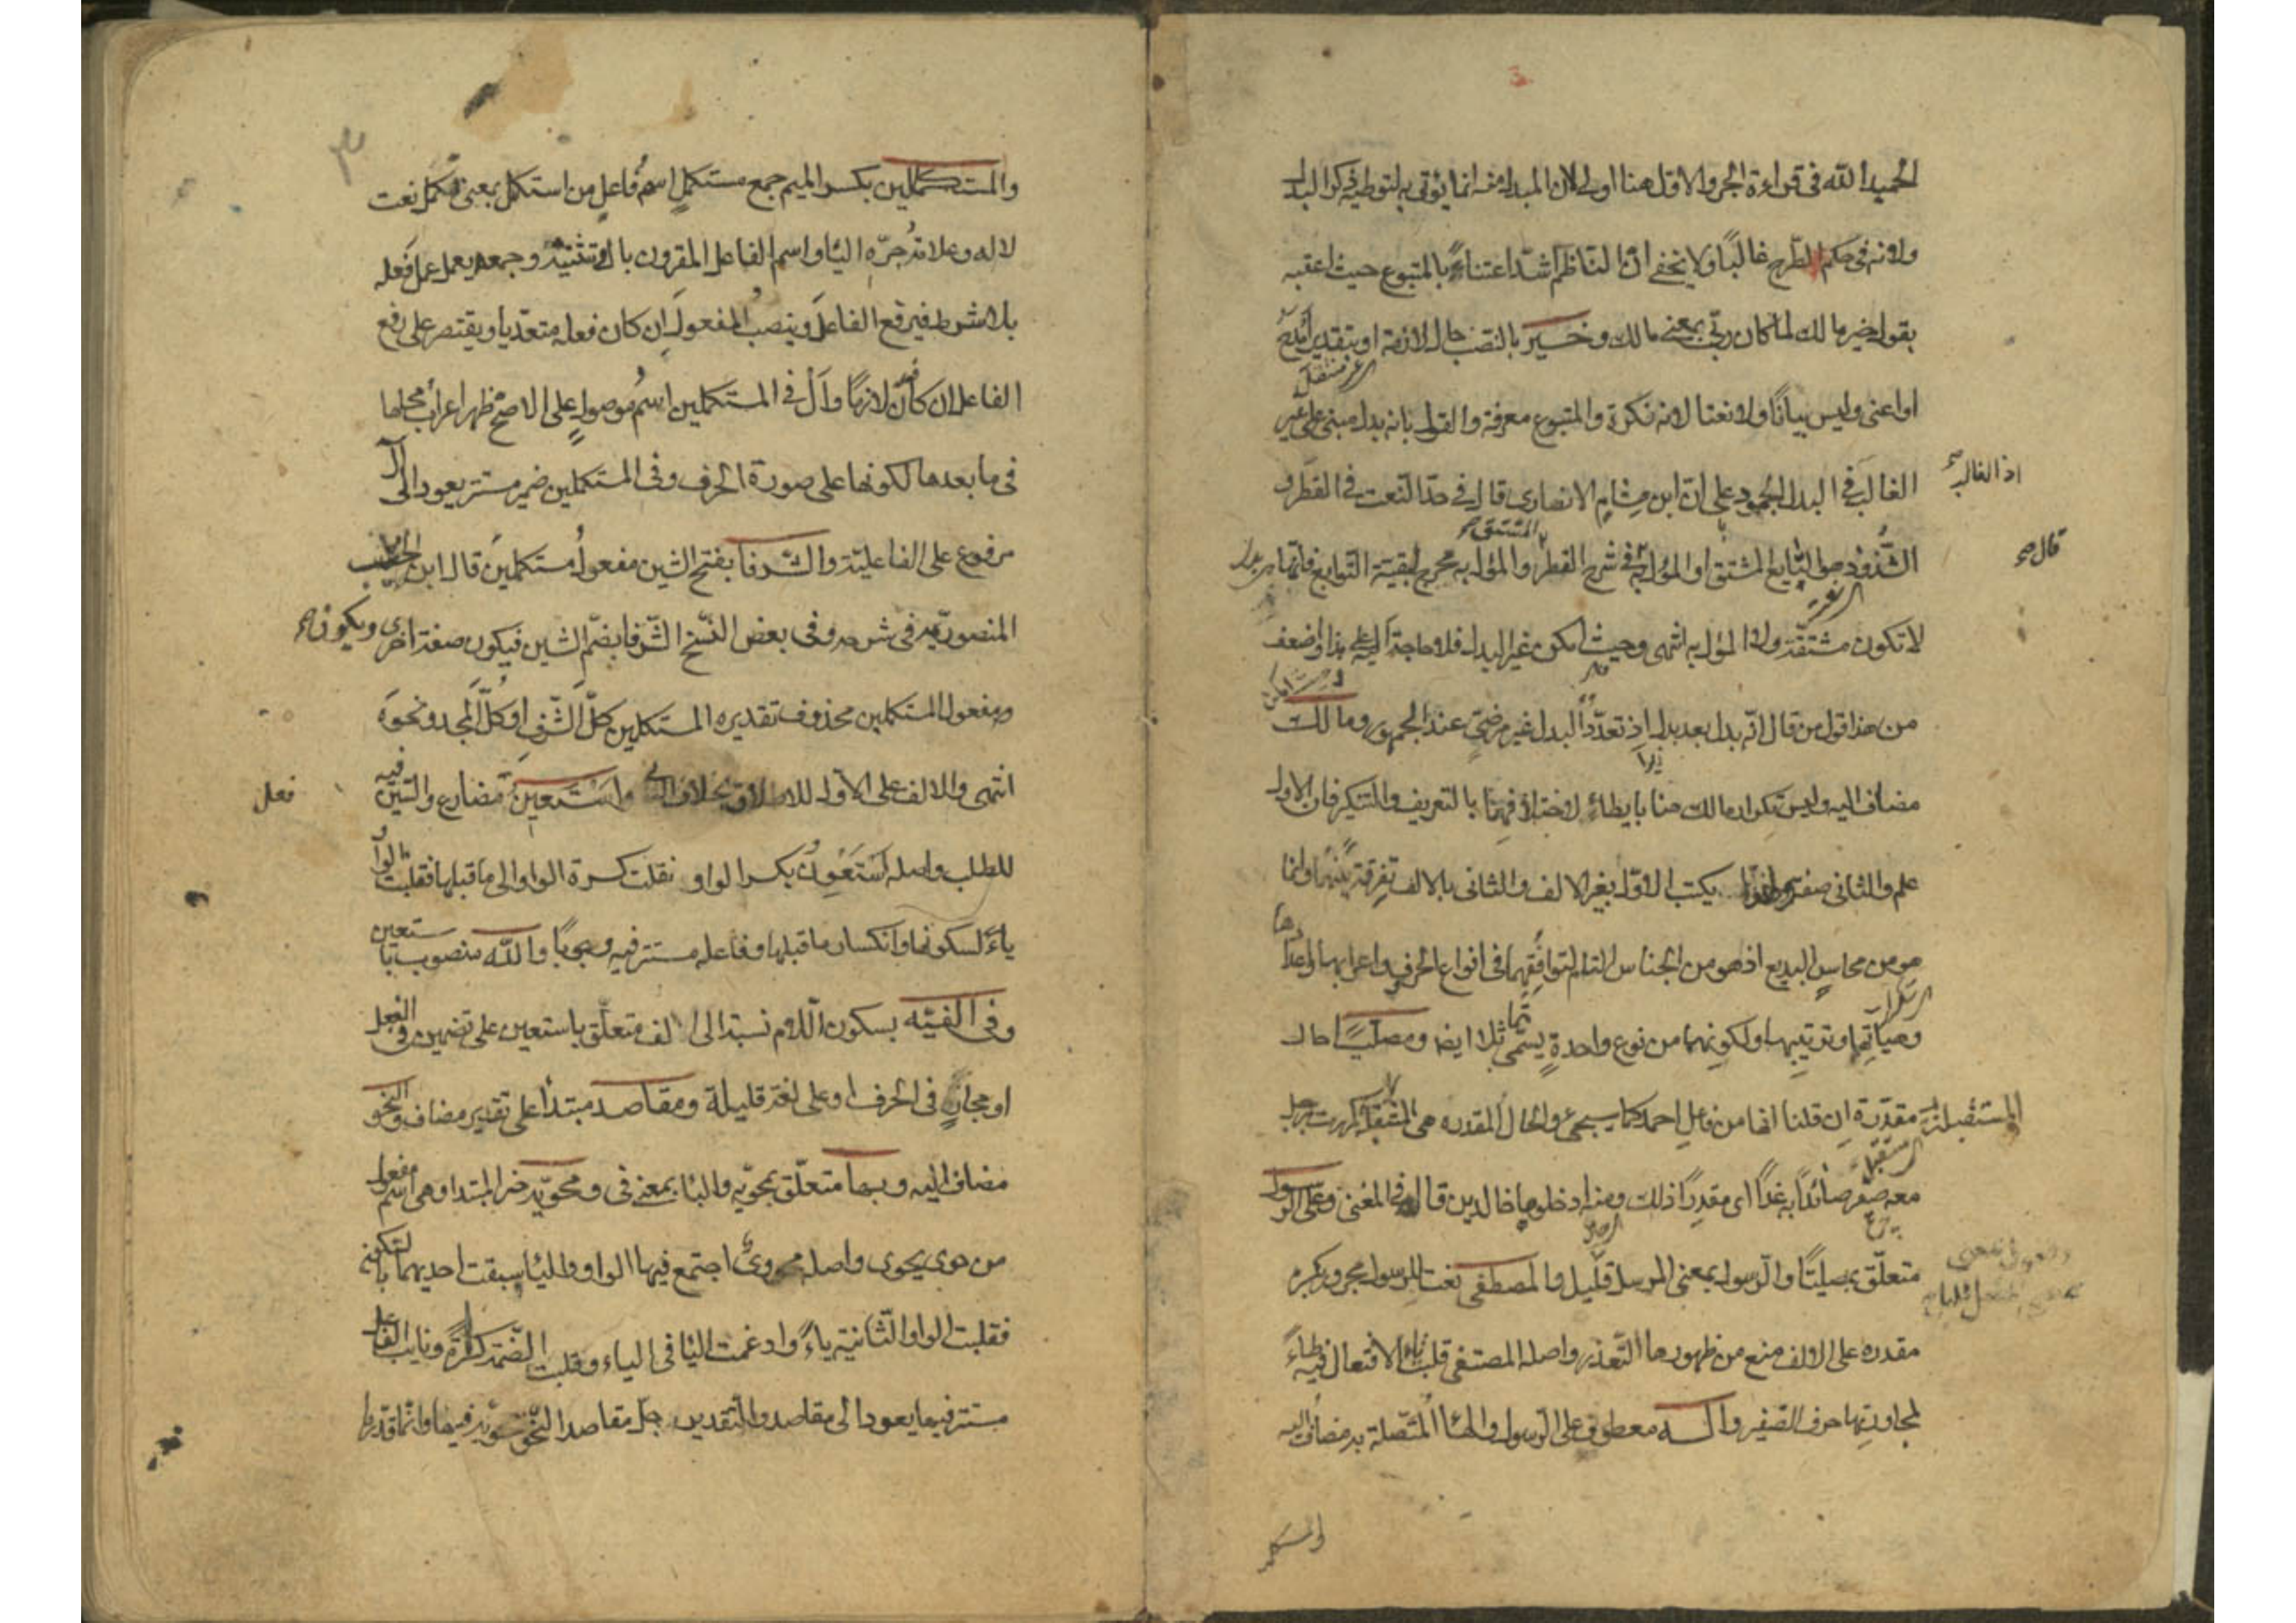 الحميد الله في قراءة الجر والاول هنا اولى لان المبدل منه انما يؤتى به لتوطية ذكر البدل
ولانه في حكم الطرح غالبًا ولا يخفى ان الناظم اشدّ اعتناءً بالمتبوع حيث اعقبه
بقوله خير مالك لما كان ربّي بمعنى مالك وخير بالنصب حال لازمة او بتقدير امدح
او اعني وليس بيانًا ولا نعتا لانه نكرة والمتبوع معرفة والقول بانه بدل مبني على غير
اذ الغالب صح
الغالب في البدل الجمود على ان ابن هشام الانصاري قال في حدّ النعت في القطر و
المشتق
قال صح
الشذور هو التابع المشتق او المؤل به في شرح القطر والمؤل به مخرج لبقية التوابع فانها
لا تكون مشتقّة ولا المؤل به انتهى وحيث امكن غير البدل فلا حاجة اليه على هذا واضعف
من هذا قول من قال انّه بدل بعد بدل اذ تعدّد البدل غير مرضيّ عند الجمهور ومالك
مضاف اليه وليس تكرار مالك هنا بايطاء لاختلافهما بالتعريف والتنكير فان الاول
علم والثاني صفة يكتب الاوّل بغير الالف والثاني بالالف تفرقة بينهما وانما
هو من محاسن البديع اذ هو من الجناس التام لتوافقهما في انواع الحرف واعرابها واعدادها
وهياتها وترتيبها ولكونهما من نوع واحدة يسمى تماثلا ايضا ومصلّيًا حال
مقدّرة ان قلنا انها من فاعل احمد كما سيجئ والحال المقدره هي المستقبلة كمررت برجل
معه صقر صائدًا به غدًا اي مقدرًا ذلك ومنه ادخلوها خالدين قاله في المغني وعلى الرسول
متعلّق بمصليًا والرّسول بمعنى المرسل قليل والمصطفى نعت للرسول مجرور بكسرة
مقدره على الالف منع من ظهورها التعذر واصله المصتفى قلبت تاء الافتعال فيه طاءً
لمجاورتها حرف الصفير واله معطوف على الرّسول والهاء المتّصلة به مضاف اليه
٣
والمستكملين بكسر الميم جمع مستكمل اسم فاعل من استكمل بمعنى كمل نعت
لاله وعلامة جرّه الياء واسم الفاعل المقرون بال وتثنيته وجمعه يعمل عمل فعله
بلا شرط فيرفع الفاعل وينصب المفعول ان كان فعله متعدّيا ويقتصر على رفع
الفاعل ان كان لازمًا وال في المستكملين اسم موصول على الاصح ظهر اعراب محلها
في ما بعدها لكونها على صورة الحرف وفي المستكملين ضمير مستتر يعود الى ال
مرفوع على الفاعليّة والشرفا بفتح الشين مفعول مستكملين قال ابن
في شرحه وفي بعض النسخ الشّرفا بضمّ الشين فيكون صفة اخرى ويكون صح
ومفعول المستكملين محذوف تقديره المستكملين كلّ الشّرف او كلّ المجد ونحوه
انتهى والالف على الاول للاطلاق بخلاف واستعين مضارع والسين فيه
فعل
للطلب واصله استعون بكسر الواو نقلت كسرة الواو الى ما قبلها فقلبت الواو
ياءً لسكونها وانكسار ما قبلها وفاعله مستتر فيه وجوبًا والله منصوب باستعين
وفي الفيّه بسكون اللّام نسبة الى الف متعلّق باستعين على تضمين في الفعل
او مجاز في الحرف او على لغة قليلة ومقاصد مبتدأ على تقدير مضاف والنحو
مضاف اليه وبها متعلّق بمحويّه والباء بمعنى في ومحويّه خبر المبتدا وهي اسم مفعول
من حوى يحوي واصله محووي اجتمع فيها الواو والياء سبقت احديهما بالسكون
فقلبت الواو الثانية ياءً وادغمت الياء في الياء وقلبت الضمّة كسرة ونايب الفاعل
مستتر فيها يعود الى مقاصد والتقدير جلّ مقاصد النحو محويّة فيها وانما قدّرنا